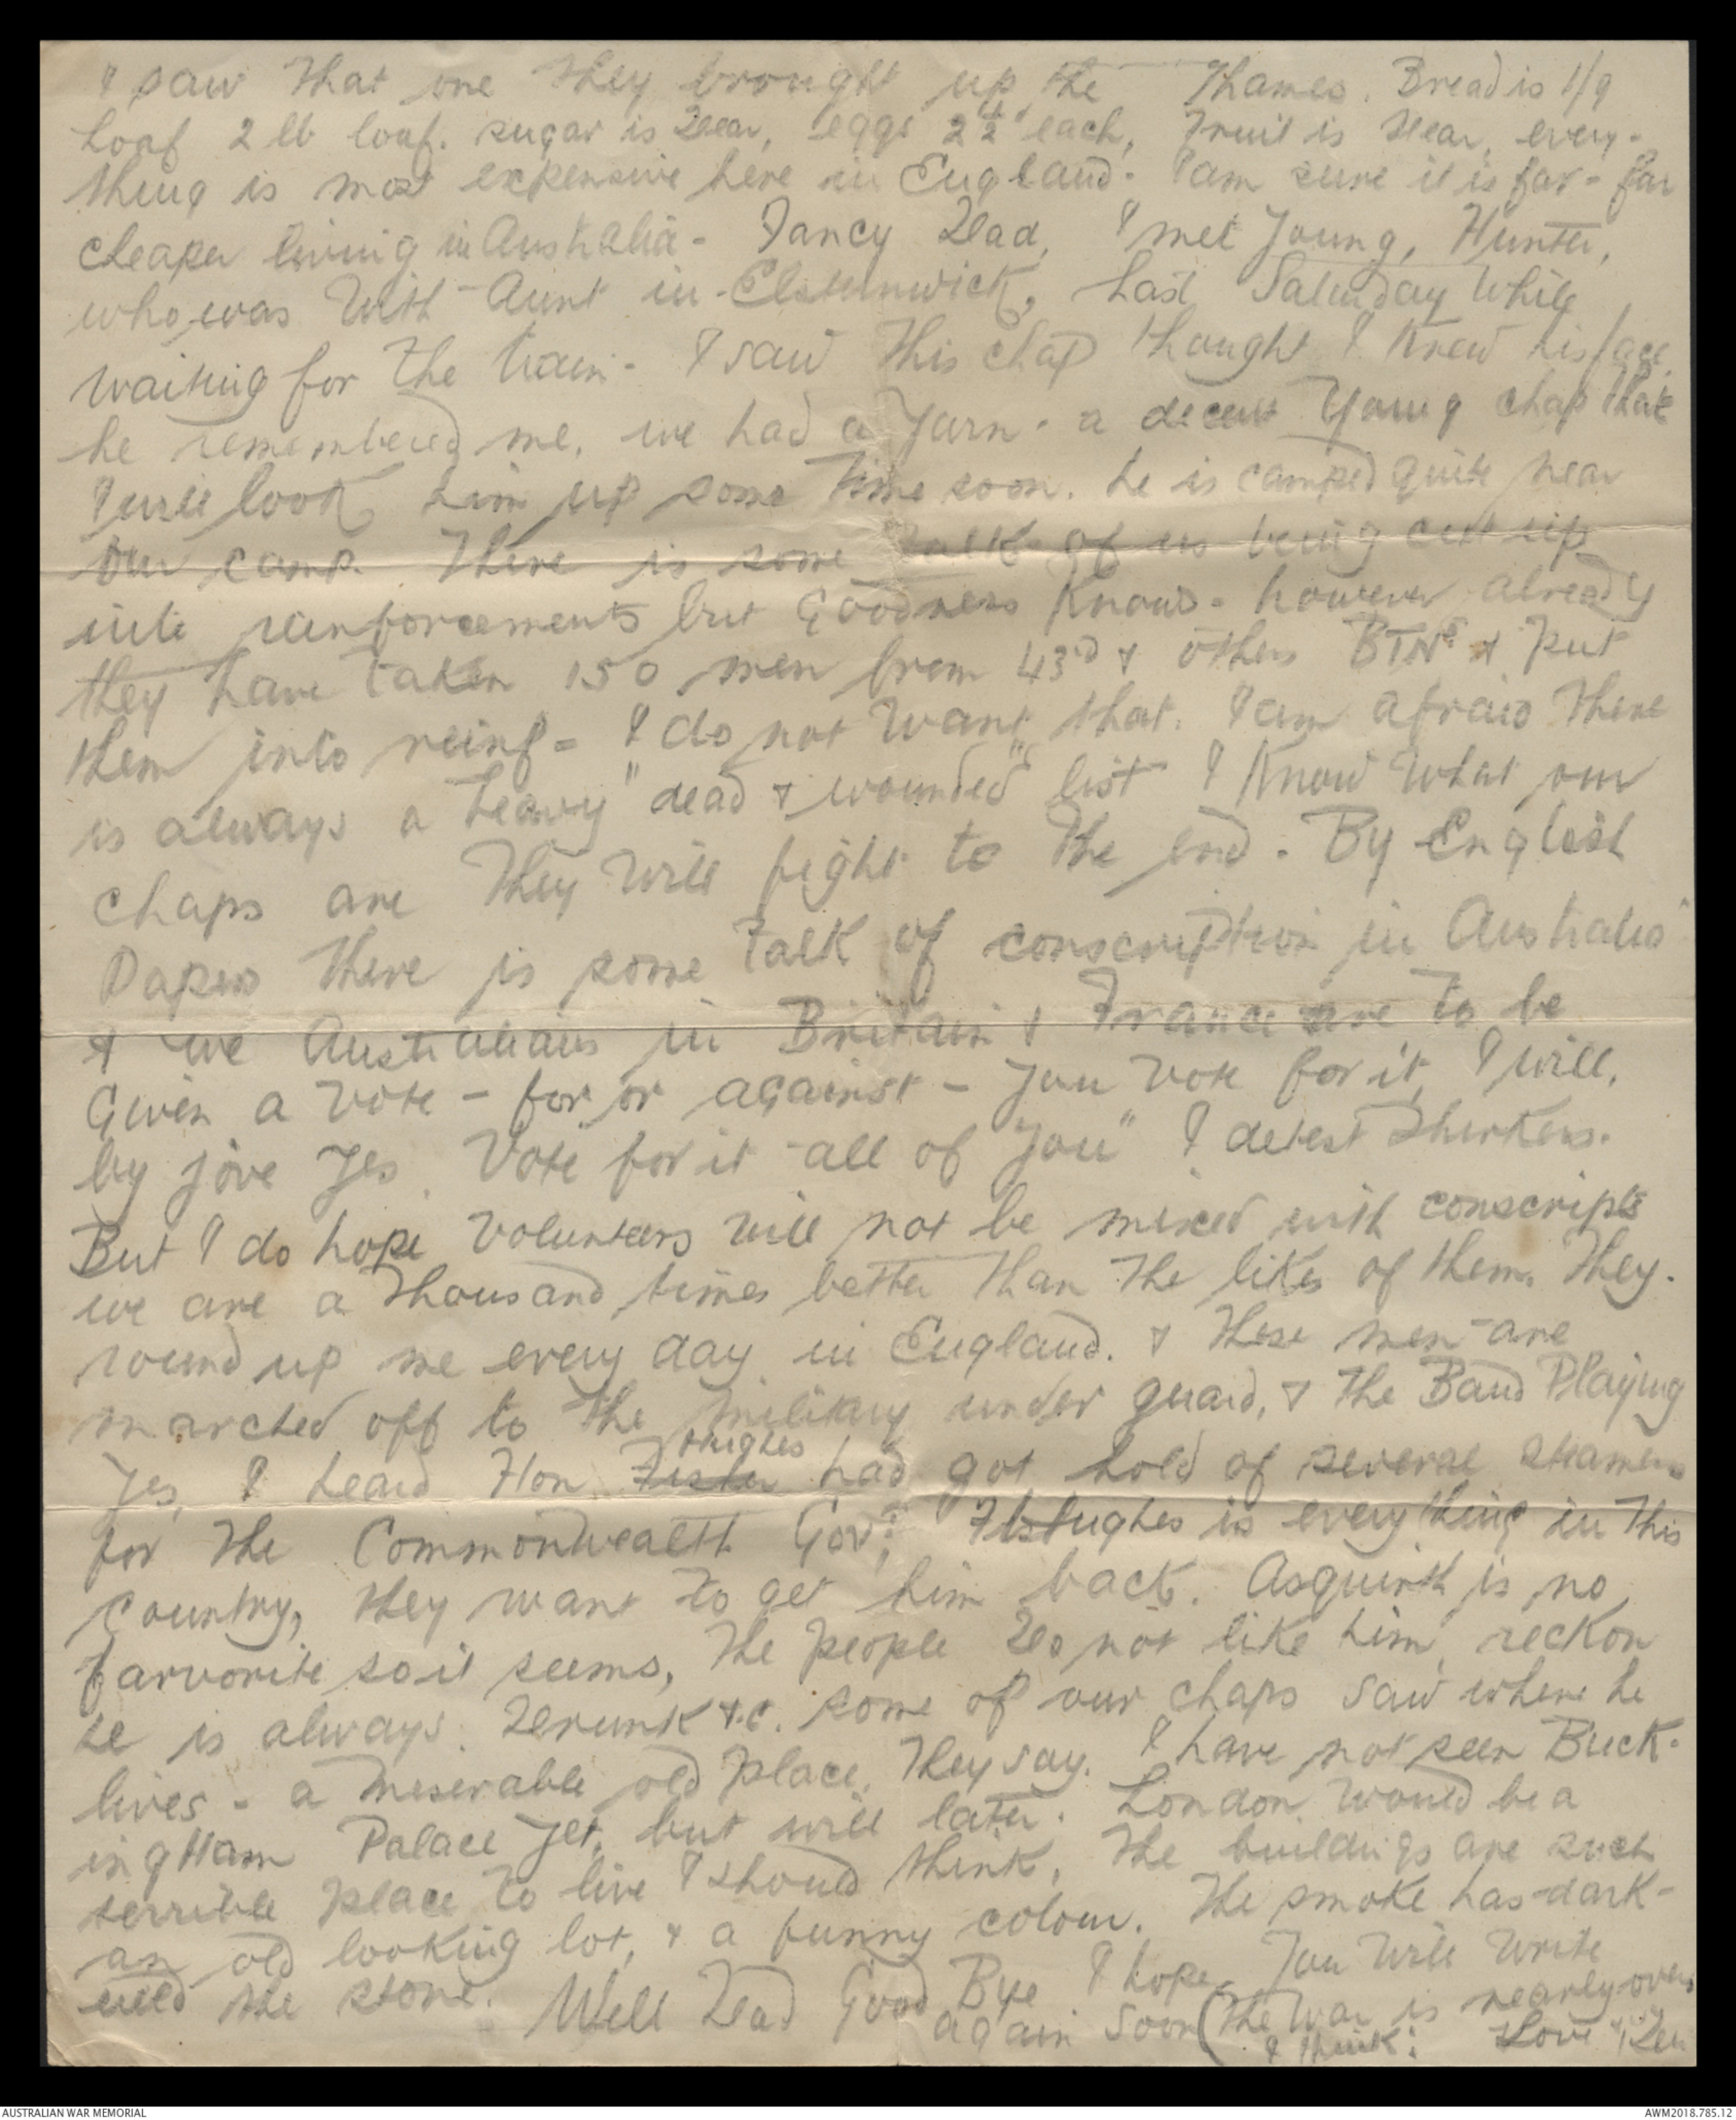 I saw that one they brought up the Thames. Bread is 1/9
loaf 2 lb loaf. sugar is Dear, eggs 2½d each, Fruit is Dear, every-
thing is most expensive here in England. I am sure it is far-far
cheaper living in Australia - Fancy Dad, I met Young, Hunter,
who was with Aunt in Elsternwick, Last Saturday while
waiting for the train - I saw this chap thought I knew his face,
he remembered me, we had a yarn - a decent young chap that
I will look him up some time soon. he is camped quite near
our camp. There is some talk of us being cut up
into reinforcements but Goodness knows - however already
they have taken 150 men from 43rd & others BTNs & put
them into reinf - I do not want that. I am afraid there
is always a heavy "dead & wounded" list I know what our
chaps are they will fight to the end. By English
Papers there is some talk of conscription in Australia
& we Australians in Britain & France are to be
given a vote - for or against - you vote for it, I will,
by jove yes, Vote for it all of "you" I detest shirkers.
But I do hope volunteers will not be mixed with conscripts
we are a thousand times better than the likes of them. They.
round up me every day in England. & these men are
marched off to the military under guard, & the Band Playing
Yes, I heard Hon Fisher Hughes had got hold of several steamers
for the Commonwealth Govt, Hughes is everything in this
country, they want to get him back. Asquith is no
farvorite so it seems, The people Do not like him, reckon
he is always Drunk &.c. some of our chaps saw where he
lives - a miserable old place, they say. I have not seen Buck-
ingham Palace yet, but will later. London would be a
terrible place to live I should think, The buildings are such
an old looking lot, & a funny colour. The smoke has dark-
ened the stone. Well Dad Good Bye I hope you will write
again soon (The war is nearly over
I think: Love Ken
AUSTRALIAN WAR MEMORIAL
AWM2018.785.12